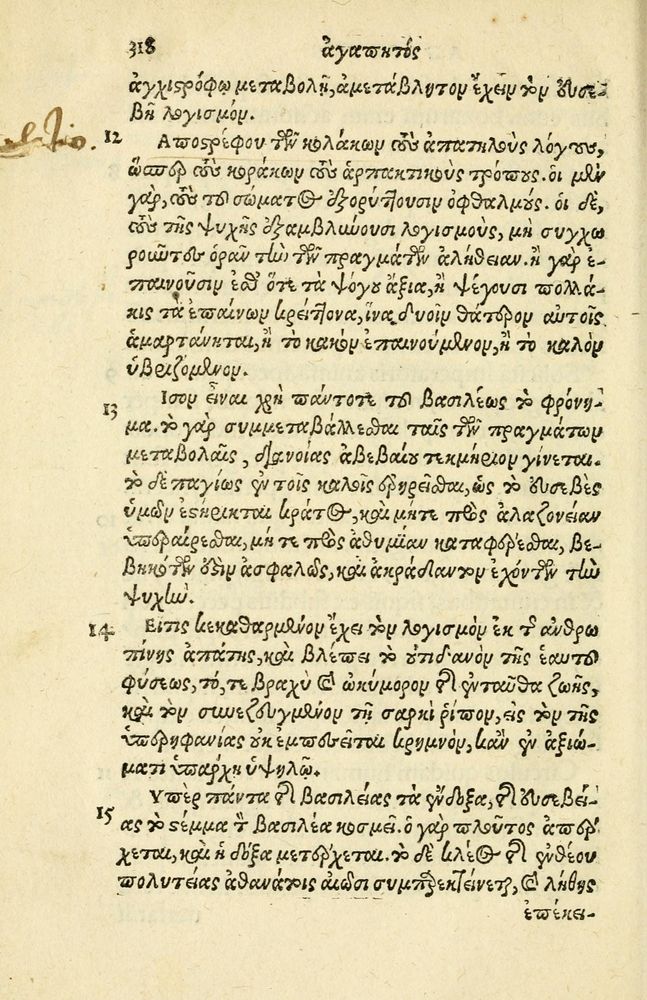 318 ἀγαπητὸς
ἀγχιστρόφῳ μεταβολῇ, ἀμετάβλητον ἔχειν τὸν εὐσε-
βῆ λογισμόν.
12 Αποστρέφου τῶν κολάκων τοὺς ἀπατηλοὺς λόγους,
ὥσπερ τοὺς κοράκων τοὺς ἁρπακτικοὺς τρόπους. οἱ μὲν
γὰρ, τοὺς τοῦ σώματος ἐξορύττουσιν ὀφθαλμούς. οἱ δὲ,
τοὺς τῆς ψυχῆς ἐξαμβλύνουσι λογισμοὺς, μὴ συγχω
ροῦντες ὁρᾶν τὴν τῶν πραγμάτων ἀλήθειαν. ἢ γὰρ ἐ-
παινοῦσιν ἐσθ᾽ ὅτε τὰ ψόγου ἄξια, ἢ ψέγουσι πολλά-
κις τὰ ἐπαίνων κρείττονα, ἵνα δυοῖν θάτερον αὐτοῖς
ἁμαρτάνηται, ἢ τὸ κακὸν ἐπαινούμενον, ἢ τὸ καλὸν
ὑβριζόμενον.
13 Ισον εἶναι χρὴ πάντοτε τοῦ βασιλέως τὸ φρόνη-
μα. τὸ γὰρ συμμεταβάλλεσθαι ταῖς τῶν πραγμάτων
μεταβολαῖς, διανοίας ἀβεβαίου τεκμήριον γίνεται.
τὸ δὲ παγίως ἐν τοῖς καλοῖς ἐρηρεῖσθαι, ὡς τὸ εὐσεβὲς
ὑμῶν ἐστήρικται κράτος, καὶ μήτε πρὸς ἀλαζονείαν
ὑπεραίρεσθαι, μήτε πρὸς ἀθυμίαν καταφέρεσθαι, βε-
βηκότων ἐστὶν ἀσφαλῶς, καὶ ἀκράδαντον ἐχόντων τὴν
ψυχήν.
14 Ειτις κεκαθαρμένον ἔχει τὸν λογισμὸν ἐκ τῆς ἀνθρω
πίνης ἀπάτης, καὶ βλέπει τὸ οὐτιδανὸν τῆς ἑαυτοῦ
φύσεως, τό, τε βραχὺ καὶ ὠκύμορον τῆς ἐνταῦθα ζωῆς,
καὶ τὸν συνεζευγμένον τῇ σαρκὶ ῥύπον, εἰς τὸν τῆς
ὑπερηφανίας οὐκ ἐμπεσεῖται κρημνὸν, κἂν ἐν ἀξιώ-
ματι ὑπάρχῃ ὑψηλῷ.
15 Υπὲρ πάντα τῆς βασιλείας τὰ ἔνδοξα, τῆς εὐσεβεί-
ας τὸ στέμμα τὸν βασιλέα κοσμεῖ. ὁ γὰρ πλοῦτος ἀπέρ
χεται, καὶ ἡ δόξα μετέρχεται. τὸ δὲ κλέος τῆς ἐνθέου
πολιτείας ἀθανάτοις αἰῶσι συμπαρεκτείνεται, καὶ λήθης
ἐπέκει-